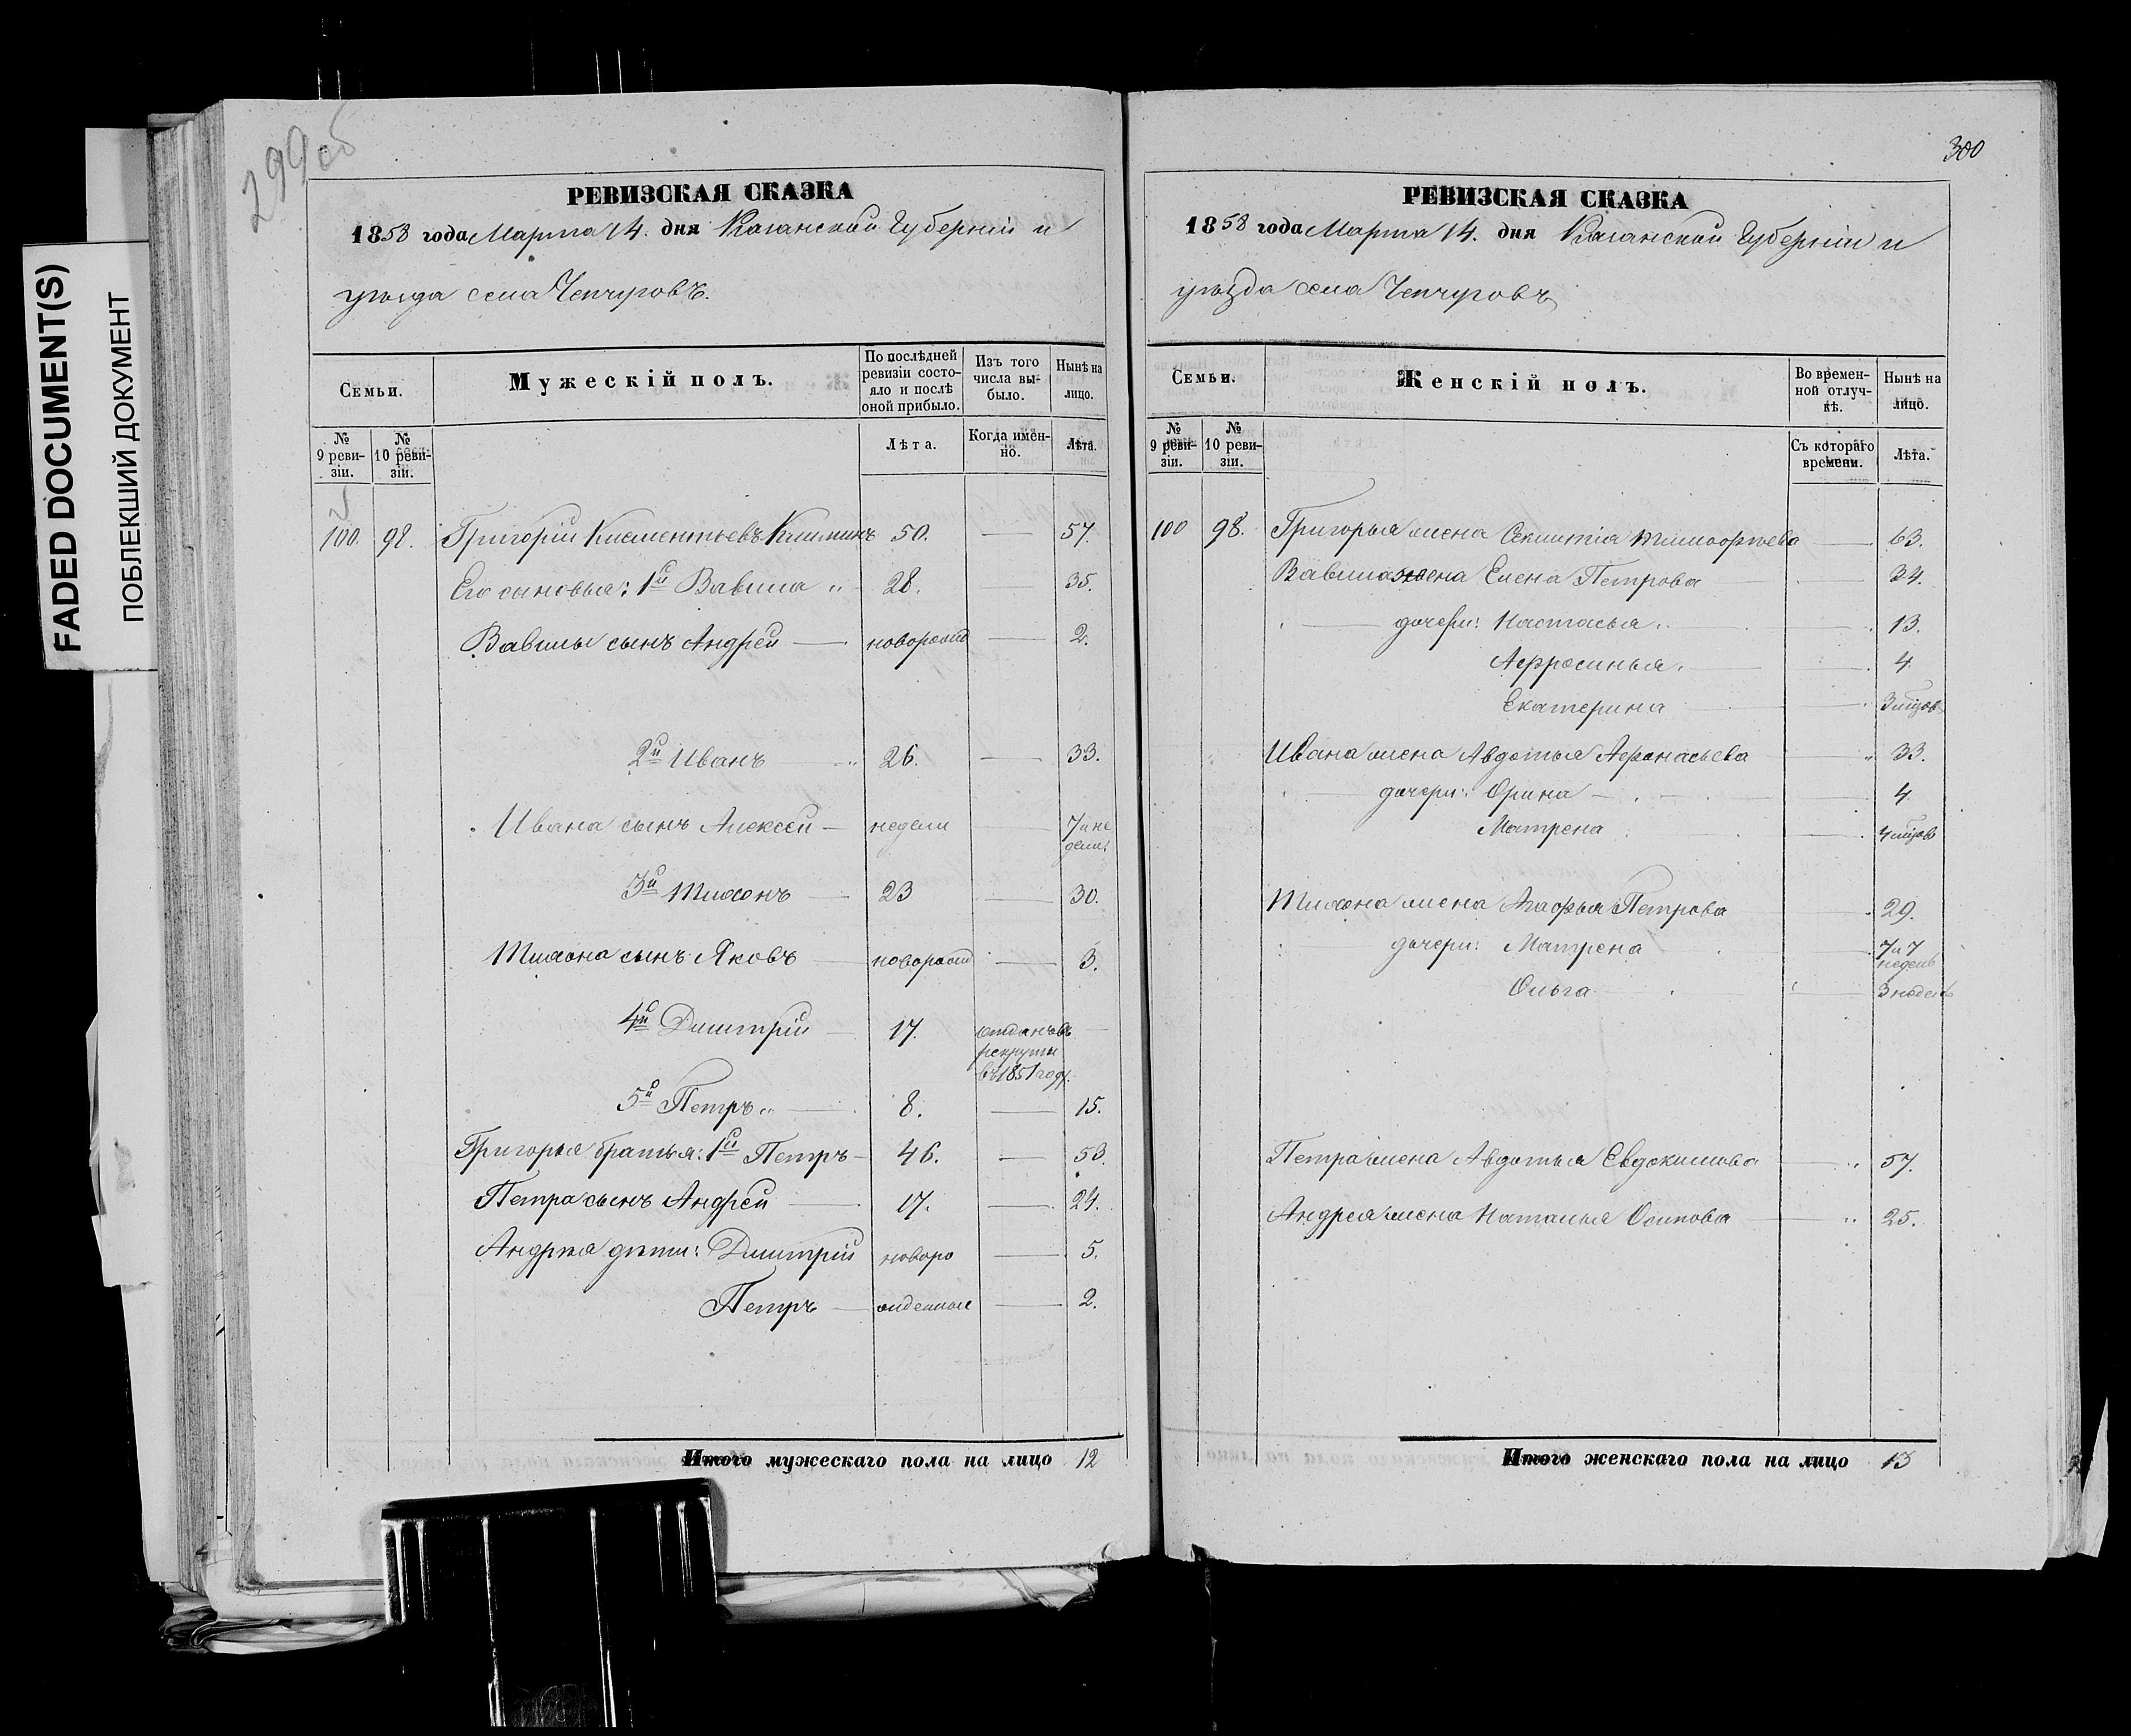 FADED DOCUMENT(S)
ПОБЛЕКШИЙ ДОКУМЕНТ
299об
РЕВИЗСКАЯ СКАЗКА
1858 года Марта 14. дня Казанской Губерніи и
уѣзда села Чепчуговъ.
Семьи.
Мужескій полъ.
По послѣдней ревизіи состо-
яло и послѣ оной прибыло.
Изъ того числа вы-
было.
Нынѣ на лицо.
№ 9 реви-
зіи.
№ 10 реви-
зіи.
Лѣта.
Когда имен-
но.
Лѣта.
100. 98. Григорій Клементьевъ 50. — 57.
Его сыновья: 1й Вавила „ 28. — 35.
Вавилы сынъ Андрей — новорожд — 2.
2й Иванъ „ 26. — 33.
Ивана сынъ Алексей — недели — 7 и не
дели
3й Тихонъ — 23 — 30.
Тихона сынъ Яковъ — новорожд — 3.
4й Дмитрій — 17. отданъ въ —
рекруты
въ 1851 году.
5й Петръ „ — 8. — 15.
Григорья братья: 1й Петръ — 46. — 53.
Петра сынъ Андрей — 17. — 24.
Андрея дѣти: Дмитрій новоро — 5.
Петръ — жденные — 2.
Итого мужескаго пола на лицо 12
300
РЕВИЗСКАЯ СКАЗКА
1858 года Марта 14. дня Казанской Губерніи и
уѣзда села Чепчуговъ
Семьи.
Женскій полъ.
Во времен-
ной отлуч-
кѣ.
Нынѣ на лицо.
№ 9 реви-
зіи.
№ 10 реви-
зіи.
Съ котораго времени.
Лѣта.
100 98. Григорья жена Тимофѣева — 63.
Вавила жена Елена Петрова — 34.
дочери: Настасья — 13.
Афросинья — 4
Екатерина — 3 мцов
Ивана жена Авдотья Афонасьева — „ 33.
дочери: Орина — 4
Матрена — 4 мцов
Тихона жена Агафья Петрова — 29.
дочери: Матрена — 7 и 7
недель
Ольга — 3 недель
Петра жена Авдотья Евдокимова — „ 57.
Андрея жена Наталья Осипова — „ 25.
Итого женскаго пола на лицо 13